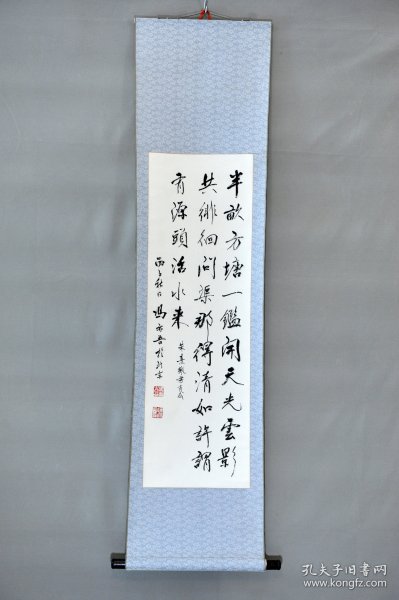 半畝方塘一鑑開天光雲影
共徘徊問渠那得清如許謂
有源頭活水来
朱熹觀書有感
丙子秋日馮
於北京
孔夫子旧书网
www.kongfz.com